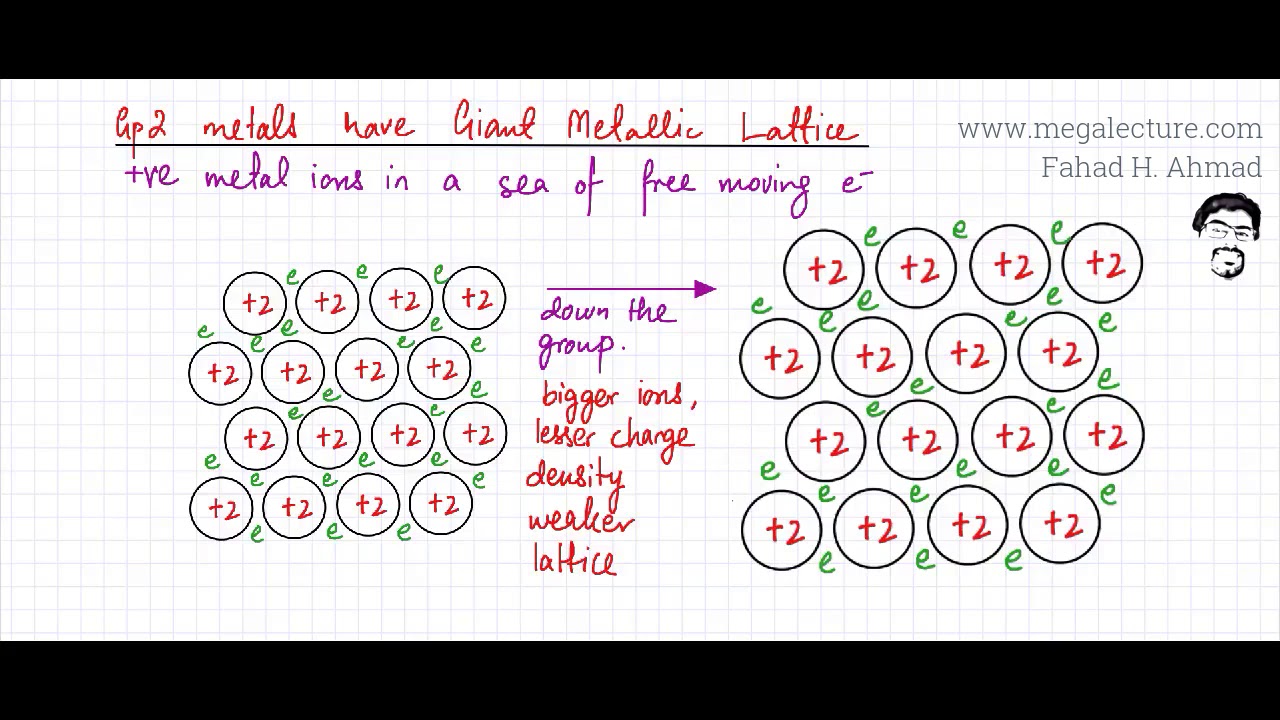 Gp2 metals have Giant Metallic Lattice
www.megalecture.com
+ve metal ions in a sea of free moving e⁻
Fahad H. Ahmad
e e e
+2 +2 +2 +2
e e e
e e e
+2 +2 +2 +2
e e
e e
+2 +2 +2 +2
e e e
e e e
+2 +2 +2 +2
e e e
down the
group.
bigger ions,
lesser charge
density
weaker
lattice
e e e
+2 +2 +2 +2
e e e
e e e
+2 +2 +2 +2
e e
e e
+2 +2 +2 +2
e e e
e e e
+2 +2 +2 +2
e e e